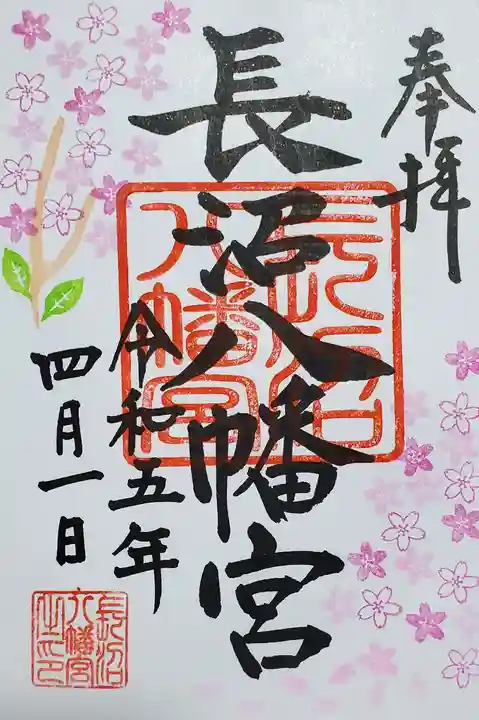 奉拝
長沼八幡宮
長沼八幡宮
令和五年
四月一日
長沼
八幡宮
之印